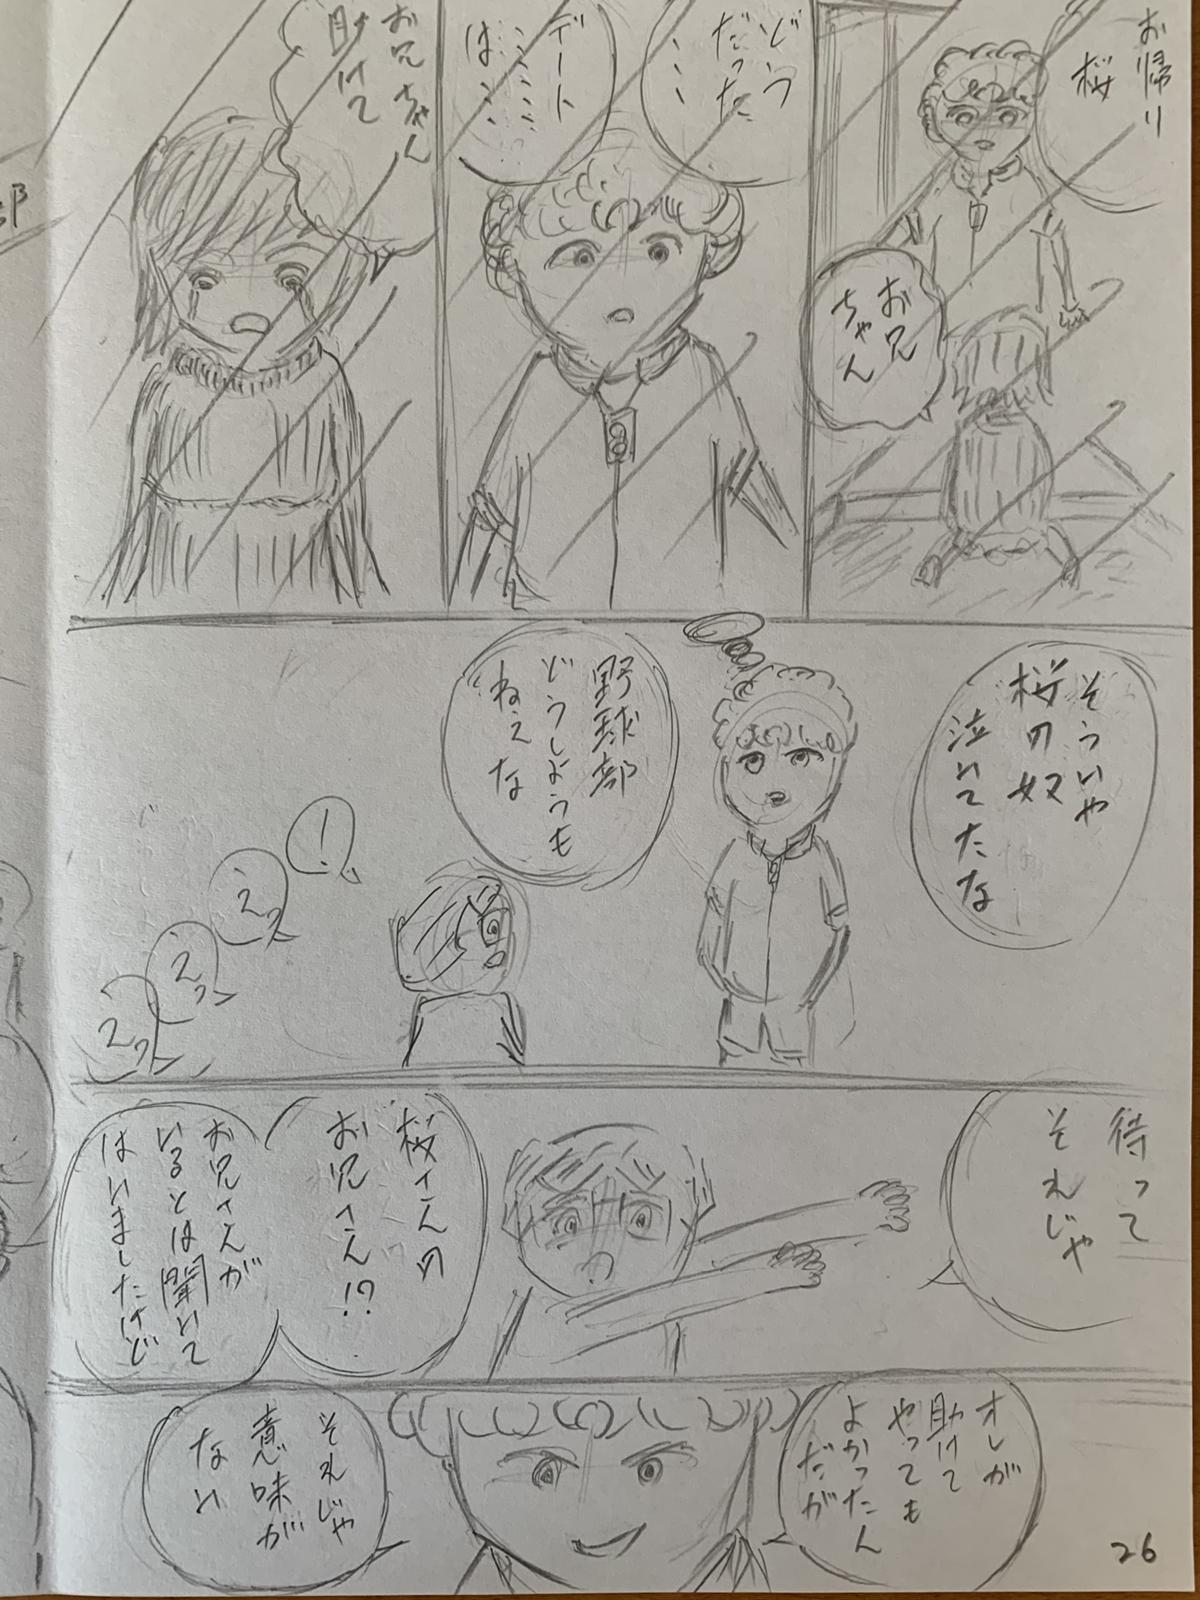 お帰り
桜
お兄
ちゃん
どう
だった
、、、
デート
は、
お兄ちゃん
助けて
部
そういや
桜の奴
泣いてたな
野球部
どうしようも
ねぇな
！
えっ
えっ
えっ
待って
それじゃ
桜さんの
お兄さん!?
お兄さんが
いるとは聞いて
はいましたけど
オレが
助けて
やっても
よかったん
だが
それじゃ
意味が
ない
26